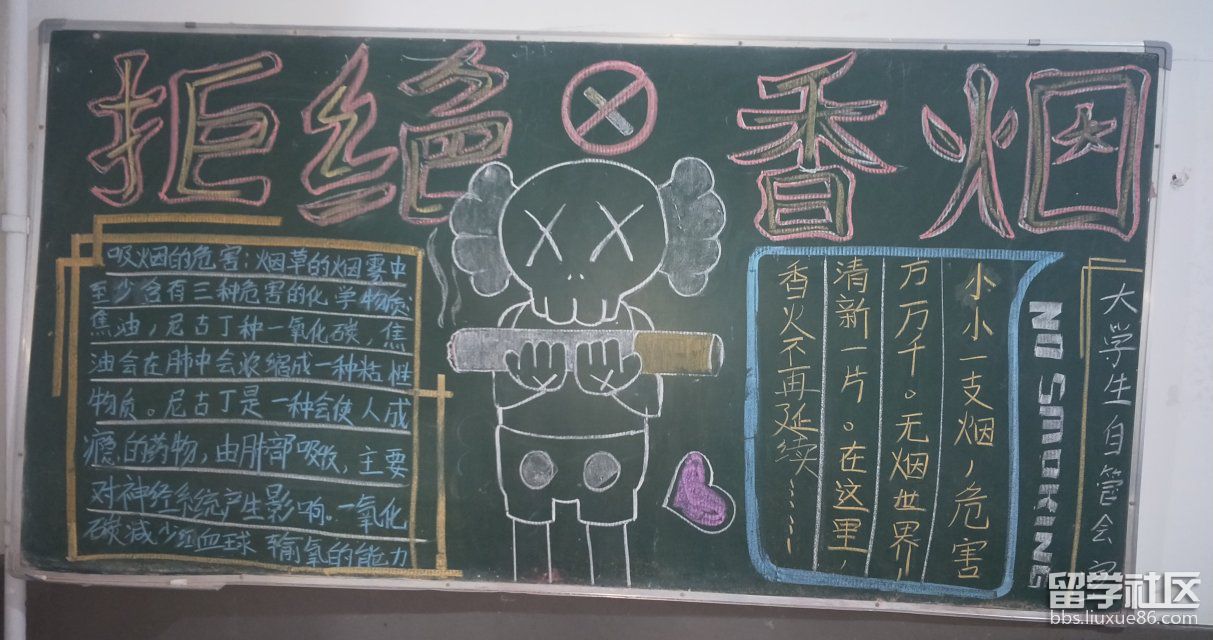 拒绝香烟
吸烟的危害:烟草的烟雾中
至少含有三种危害的化学物质:
焦油,尼古丁种一氧化碳,焦
油会在肺中会浓缩成一种粘性
物质。尼古丁是一种会使人成
瘾的药物,由肺部吸收,主要
对神经系统产生影响。一氧化
碳减少红血球输氧的能力
小小一支烟,危害
万万千。无烟世界,
清新一片。在这里,
香火不再延续……
NO SMOKING
大学生自管会
留学社区
bbs.liuxue86.com